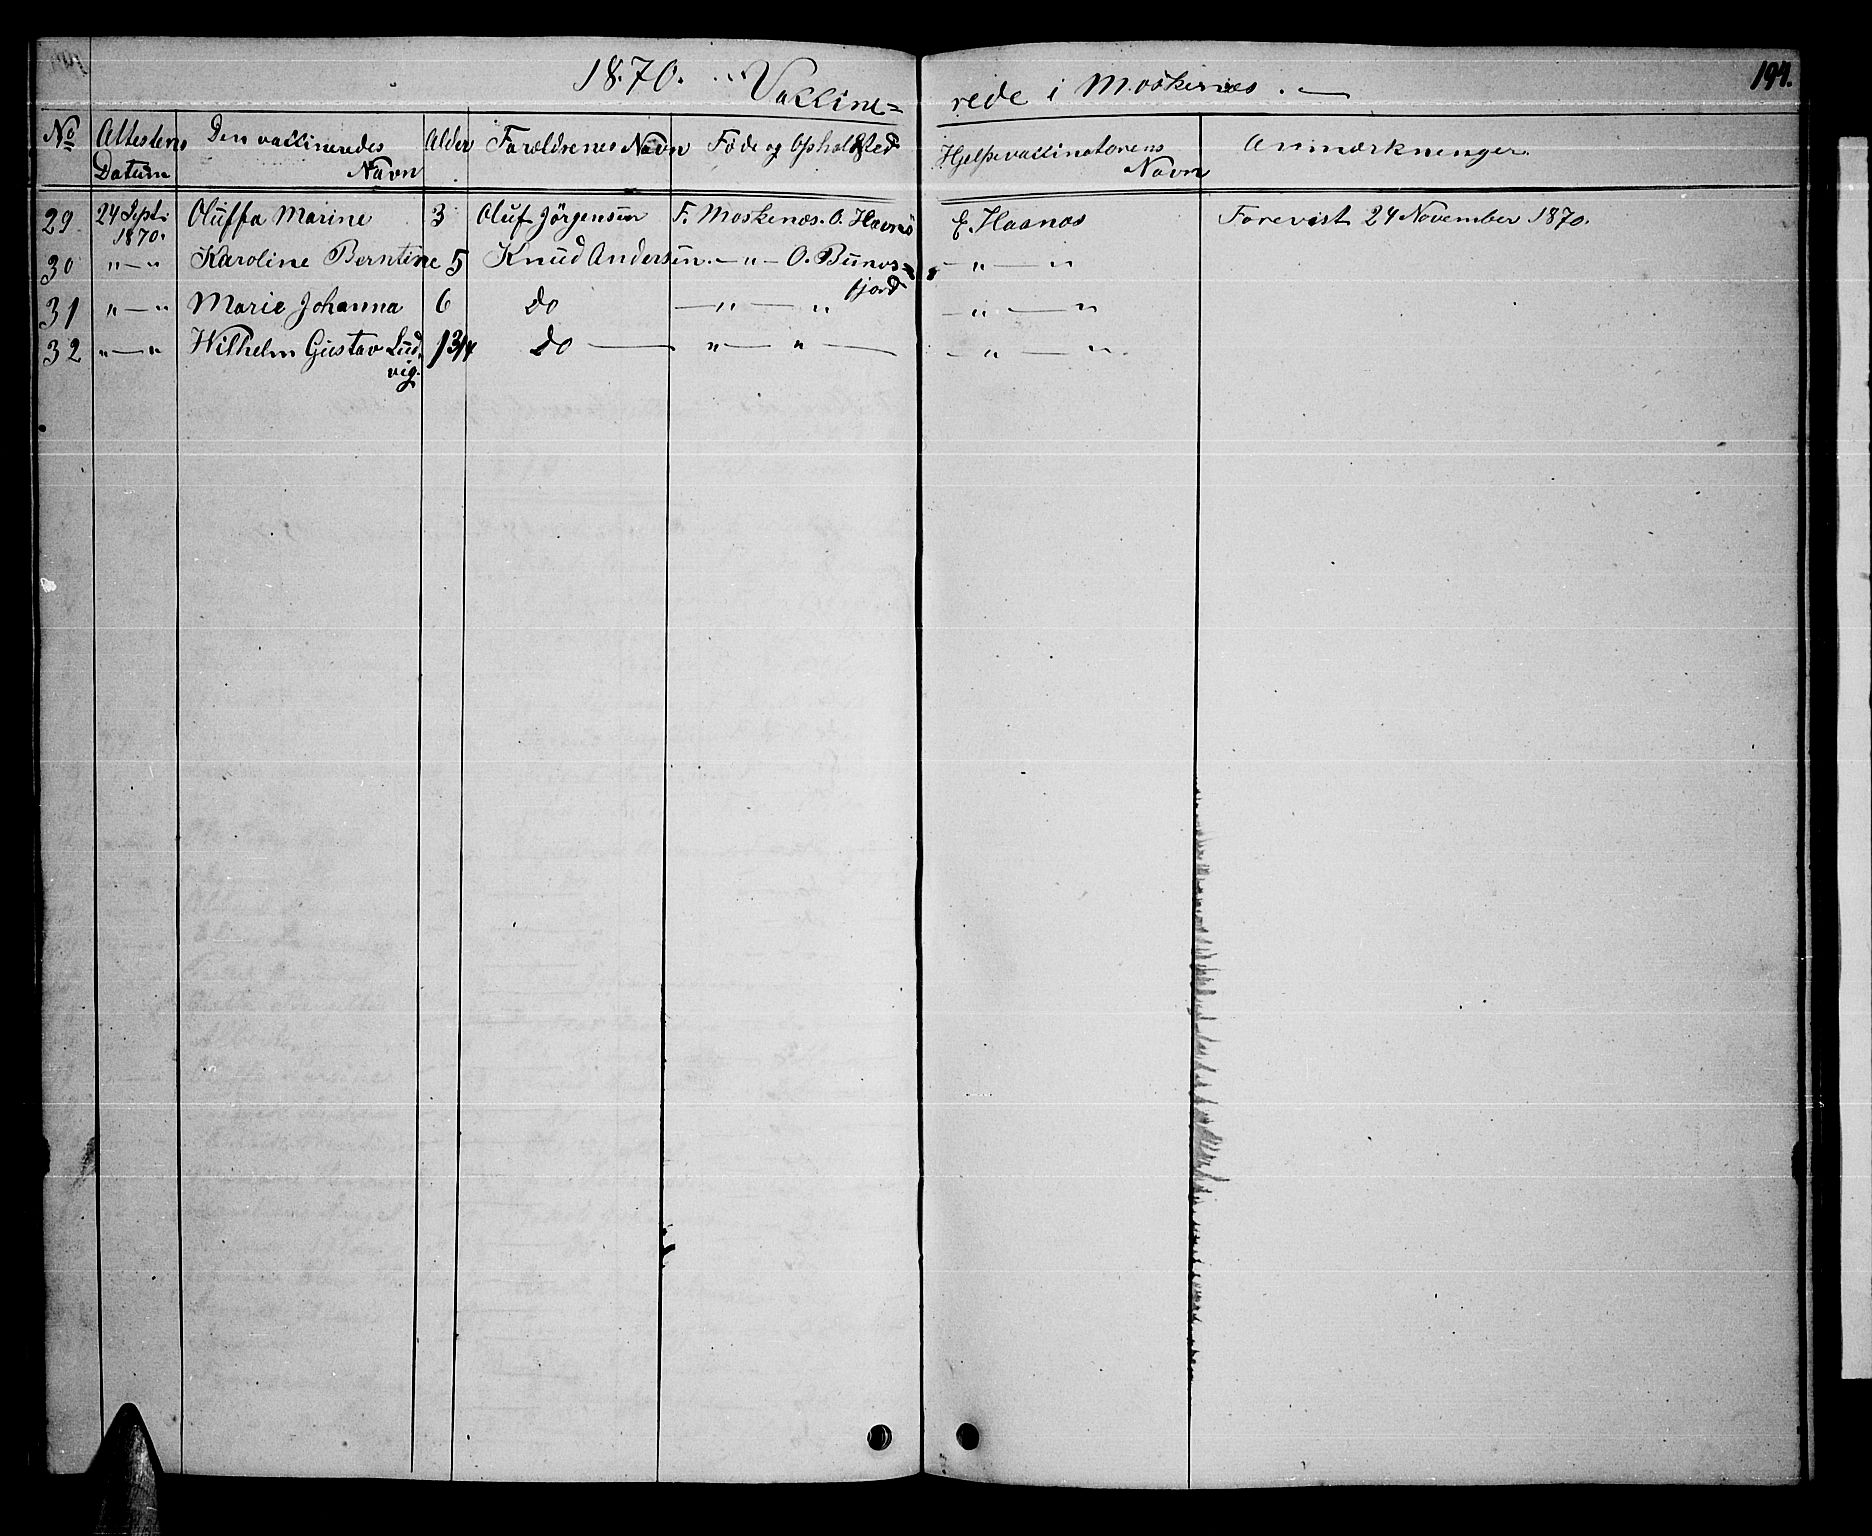 1870. Vaccine= rede i Moskenes. — 194.
No Attestens Datum Den vaccineredes Navn Alder Forældrenes Navn Føde og Opholdsted Hjelpevaccinatorens Navn Anmærkninger.
29 24 Sept. 1870. Oluffa Marine 3 Oluf Jörgensen F. Moskenæs. O. Havnö E. Haanæs Forevist 24 November 1870.
30 „ — „ Karoline Berntine 5 Knud Andersen. — „ — O. Bunes= fjord — „ — „
31 „ — „ Marie Johanna 6 Do — „ — „ — „ — „
32 „ — „ Wilhelm Gustav Lud= vig. 1 3/4 Do — „ — „ — — „ — „